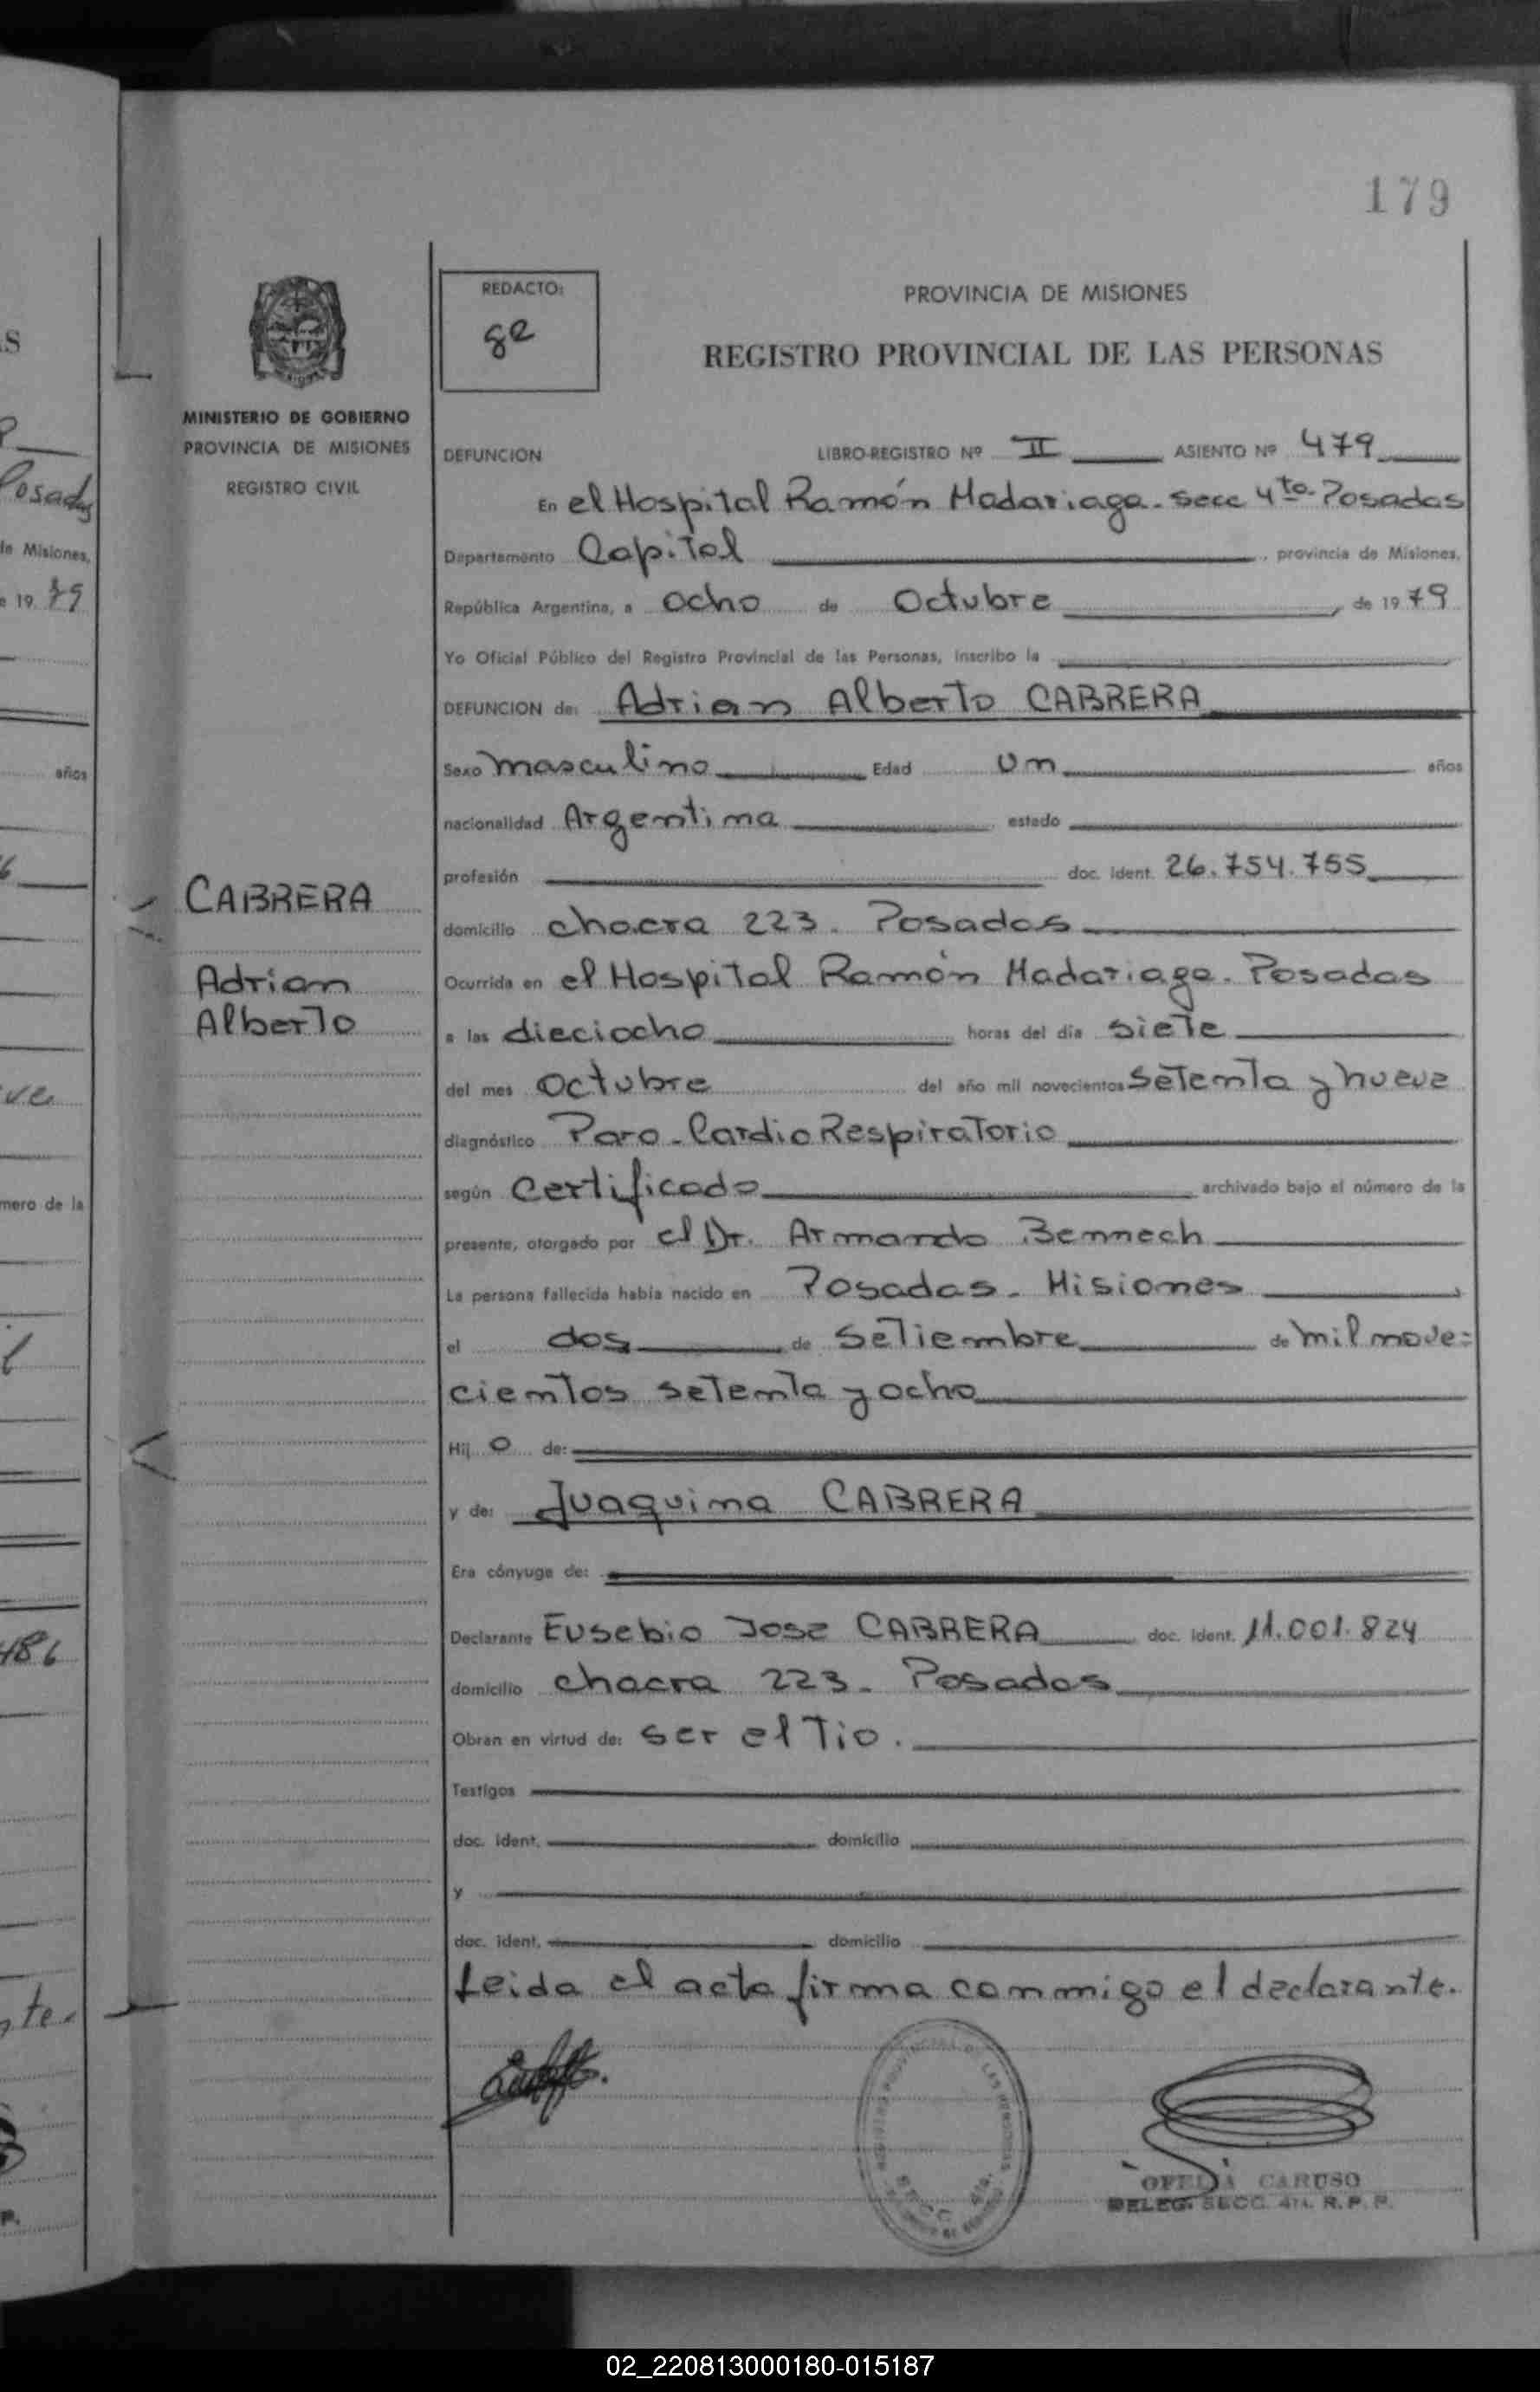 179
REDACTO:
ge
PROVINCIA DE MISIONES
REGISTRO PROVINCIAL DE LAS PERSONAS
MINISTERIO DE GOBIERNO
PROVINCIA DE MISIONES
REGISTRO CIVIL
CABRERA
Adrian
Alberto
DEFUNCION LIBRO-REGISTRO Nº II ASIENTO Nº 479
En el Hospital Ramón Madariaga. Secc 4ta. Posadas
Departamento Capital, provincia de Misiones,
República Argentina, a ocho de Octubre, de 1979
Yo Oficial Público del Registro Provincial de las Personas, inscribo la
DEFUNCION de: Adrian Alberto CABRERA
Sexo masculino Edad un años
nacionalidad Argentina estado
profesión doc. ident. 26.754.755
domicilio chacra 223. Posadas
Ocurrida en el Hospital Ramón Madariaga. Posadas
a las dieciocho horas del día siete
del mes Octubre del año mil novecientos setenta y nueve
diagnóstico Paro-CardioRespiratorio
según Certificado archivado bajo el número de la
presente, otorgado por el Dr. Armando Bennech
La persona fallecida había nacido en Posadas. Misiones,
el dos de Setiembre de mil nove=
cientos setenta y ocho
Hij o de:
y de: Juaquina CABRERA
Era cónyuge de:
Declarante Eusebio Jose CABRERA doc. ident. 11.001.824
domicilio chacra 223. Posadas
Obran en virtud de: ser el Tio.
Testigos
doc. ident. domicilio
y
doc. ident. domicilio
Leida el acta firma conmigo el declarante.
OFELIA CARUSO
DELEG. SECC. 4ta. R. P. P.
S
Posadas
de Misiones,
e 19 79
años
6
ve
mero de la
l
486
nte.
02_220813000180-015187